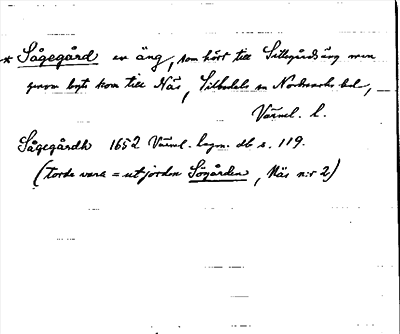 * Sågegård en äng, som hört till Sillegårdsäng men
genom byte kom till Näs, Silbodals sn Nordmarks hd,
Värml. l.
Sågegårdh 1652 Värml. lagm. db s. 119.
(torde vara = utjorden Sögården, Näs n:r 2)